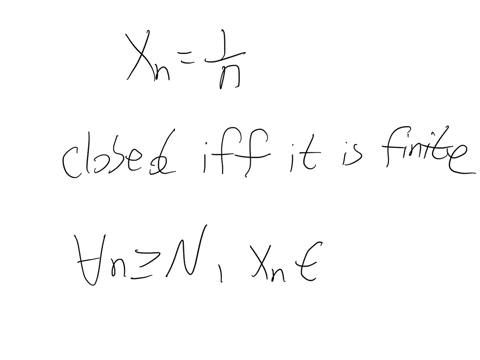 Xn = 1/n
closed iff it is finite
∀n ≥ N, Xn ∈